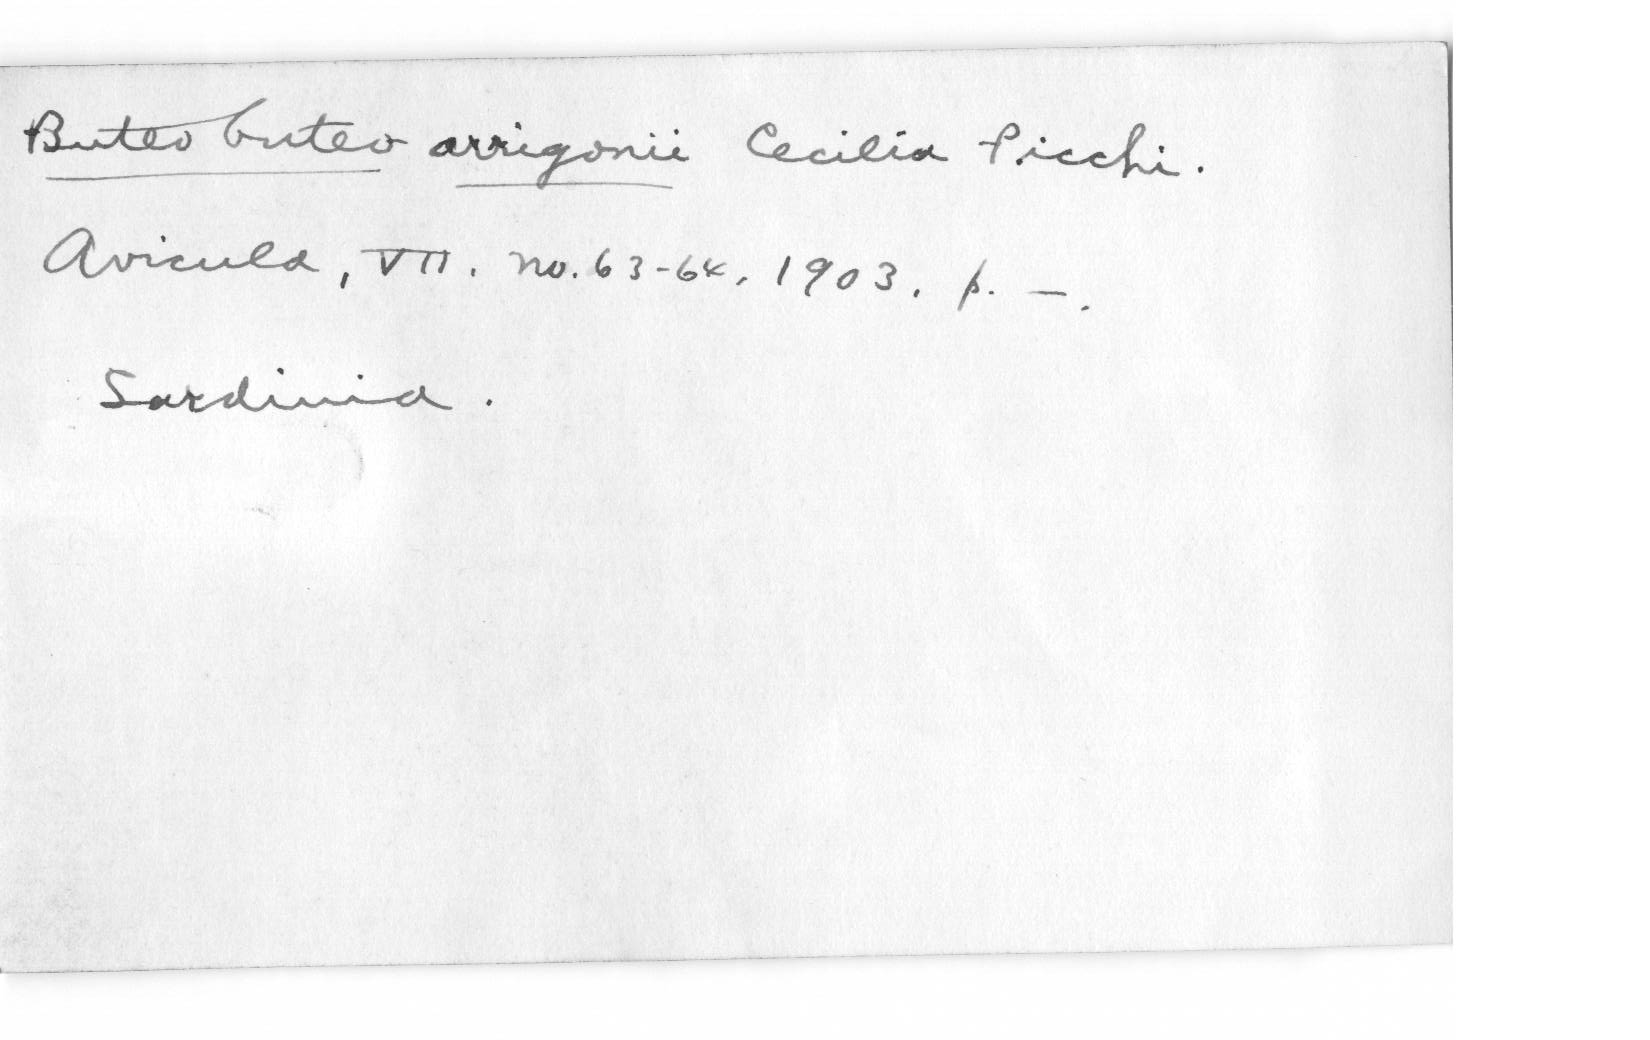 Buteo buteo arrigonii Cecilia Picchi.
Avicula, VII. no. 63-64, 1903. p. —.
Sardinia.